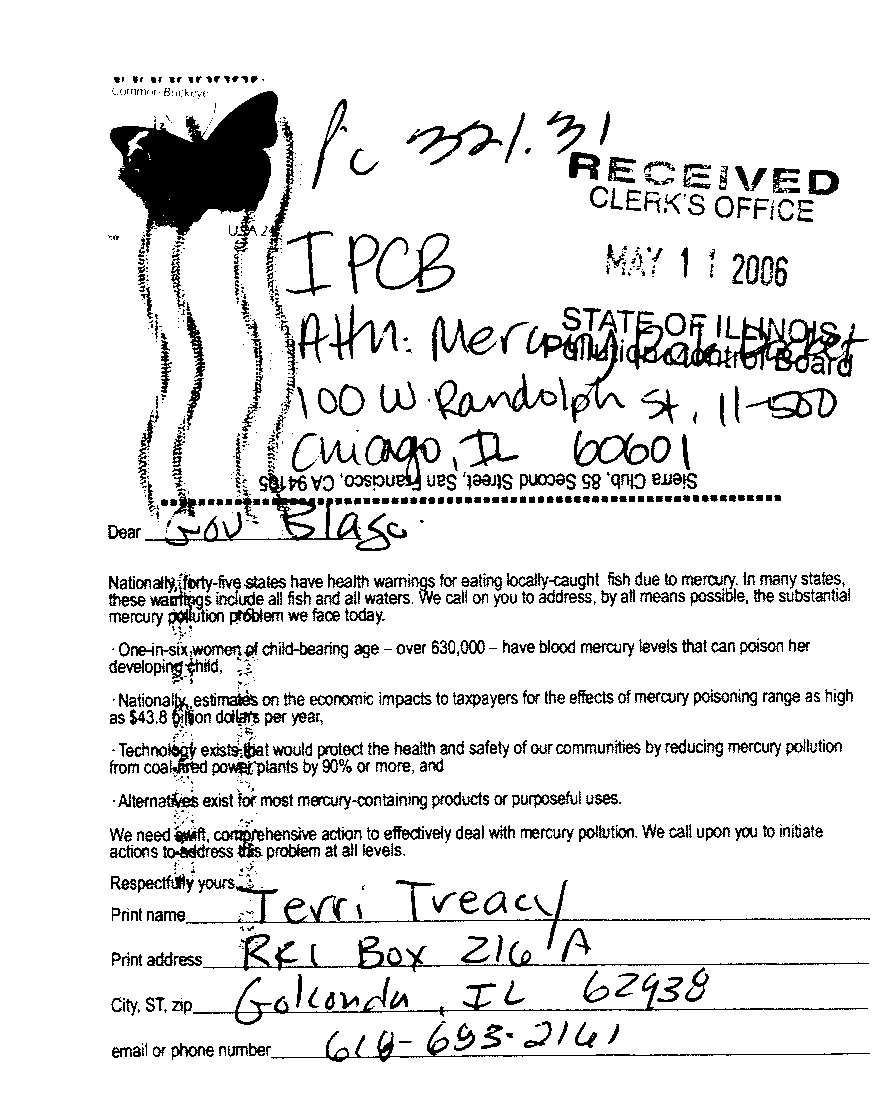 Common Buckeye
Pc 321.31
RECEIVED
CLERK'S OFFICE
USA
IPCB
MAY 11 2006
STATE OF ILLINOIS
Attn: Mercury Rule Docket
Pollution Control Board
100 W. Randolph St, 11-500
Chicago, IL 60601
Sierra Club, 85 Second Street, San Francisco, CA 94105
Dear Gov Blago.
Nationally, forty-five states have health warnings for eating locally-caught fish due to mercury. In many states,
these warnings include all fish and all waters. We call on you to address, by all means possible, the substantial
mercury pollution problem we face today.
· One-in-six women of child-bearing age – over 630,000 – have blood mercury levels that can poison her
developing child,
· Nationally, estimates on the economic impacts to taxpayers for the effects of mercury poisoning range as high
as $43.8 billion dollars per year,
· Technology exists that would protect the health and safety of our communities by reducing mercury pollution
from coal-fired power plants by 90% or more, and
· Alternatives exist for most mercury-containing products or purposeful uses.
We need swift, comprehensive action to effectively deal with mercury pollution. We call upon you to initiate
actions to address this problem at all levels.
Respectfully yours,
Print name Terri Treacy
Print address RR1 Box 216 A
City, ST, zip Golconda, IL 62938
email or phone number 618-683-2161